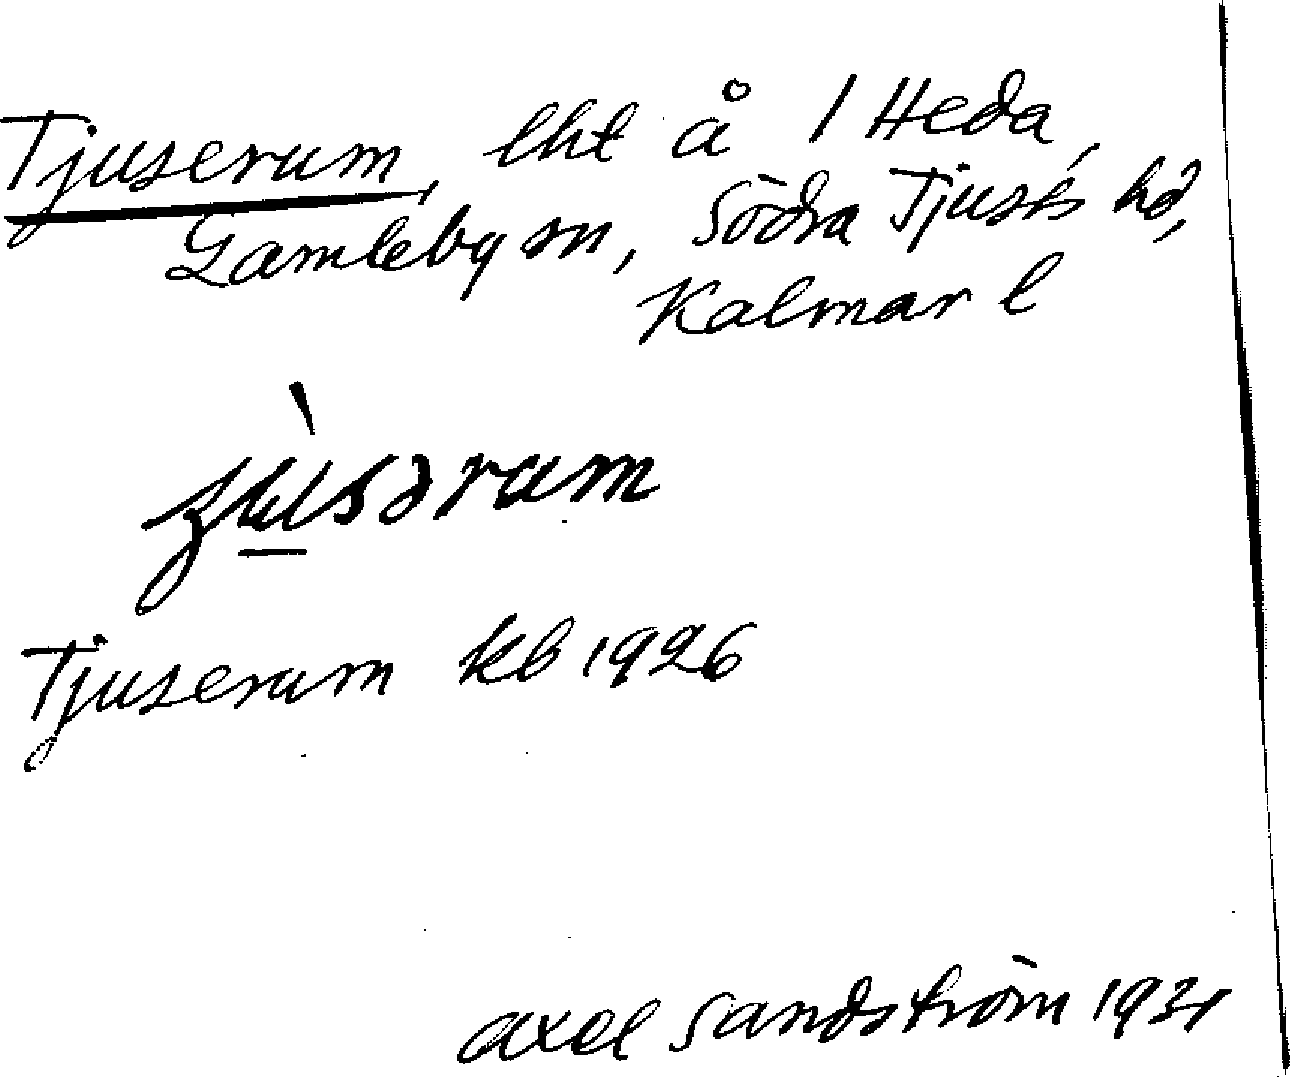 Tjuserum, lht å 1 Heda,
Gamleby sn, Södra Tjusts hd,
Kalmar l
Tjuserum kb 1926
Axel Sandström 1931